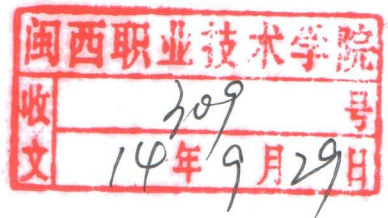 闽西职业技术学院
收文 309号
14年9月29日